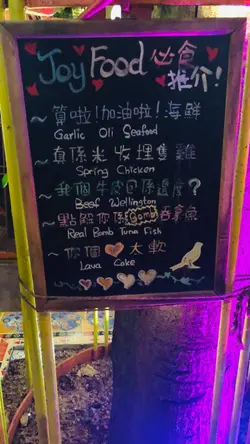 Joy Food 必食推介!
~ 算啦!加油啦!海鮮
Garlic Oli Seafood
~ 真係米收埋隻雞
Spring Chicken
~ 我個牛皮包係邊度?
Beef Wellington
~ 點殺你係Bomb吞拿魚
Real Bomb Tuna Fish
~ 你個 太軟
Lava Cake